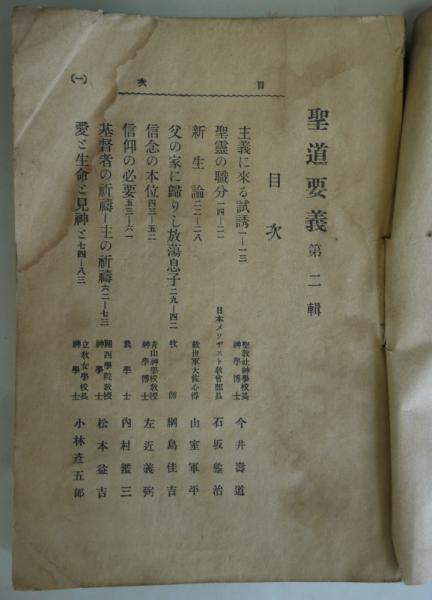 目次 (一)
聖道要義 第二輯
目次
主義に來る試誘 一―一三 聖教社神學校長 神學博士 今井壽道
聖靈の職分 一四―二一 日本メソヂスト教會部長 石坂龜治
新生論 二二―二八 救世軍大佐心得 山室軍平
父の家に歸りし放蕩息子 二九―四二 牧師 綱島佳吉
信念の本位 四三―五二 青山神學校教授 神學博士 左近義弼
信仰の必要 五三―六一 農學士 內村鑑三
基督者の祈禱―主の祈禱 六二―七三 關西學院教授 神學士 松本益吉
愛と生命と見神と 七四―八三 立教女學校長 神學士 小林彦五郎